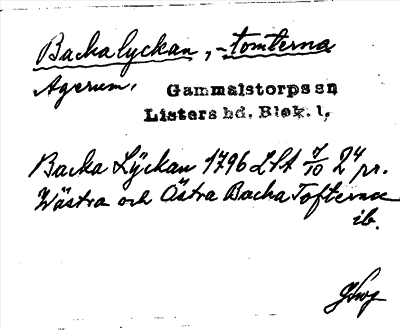 Backalyckan, -tomterna
Agerum.
Gammalstorps sn
Listers hd. Blek. l.
Backa Lÿckan 1796 LSA 7/10 24 pr.
Wästra och Östra Backa Tofterna
ib.